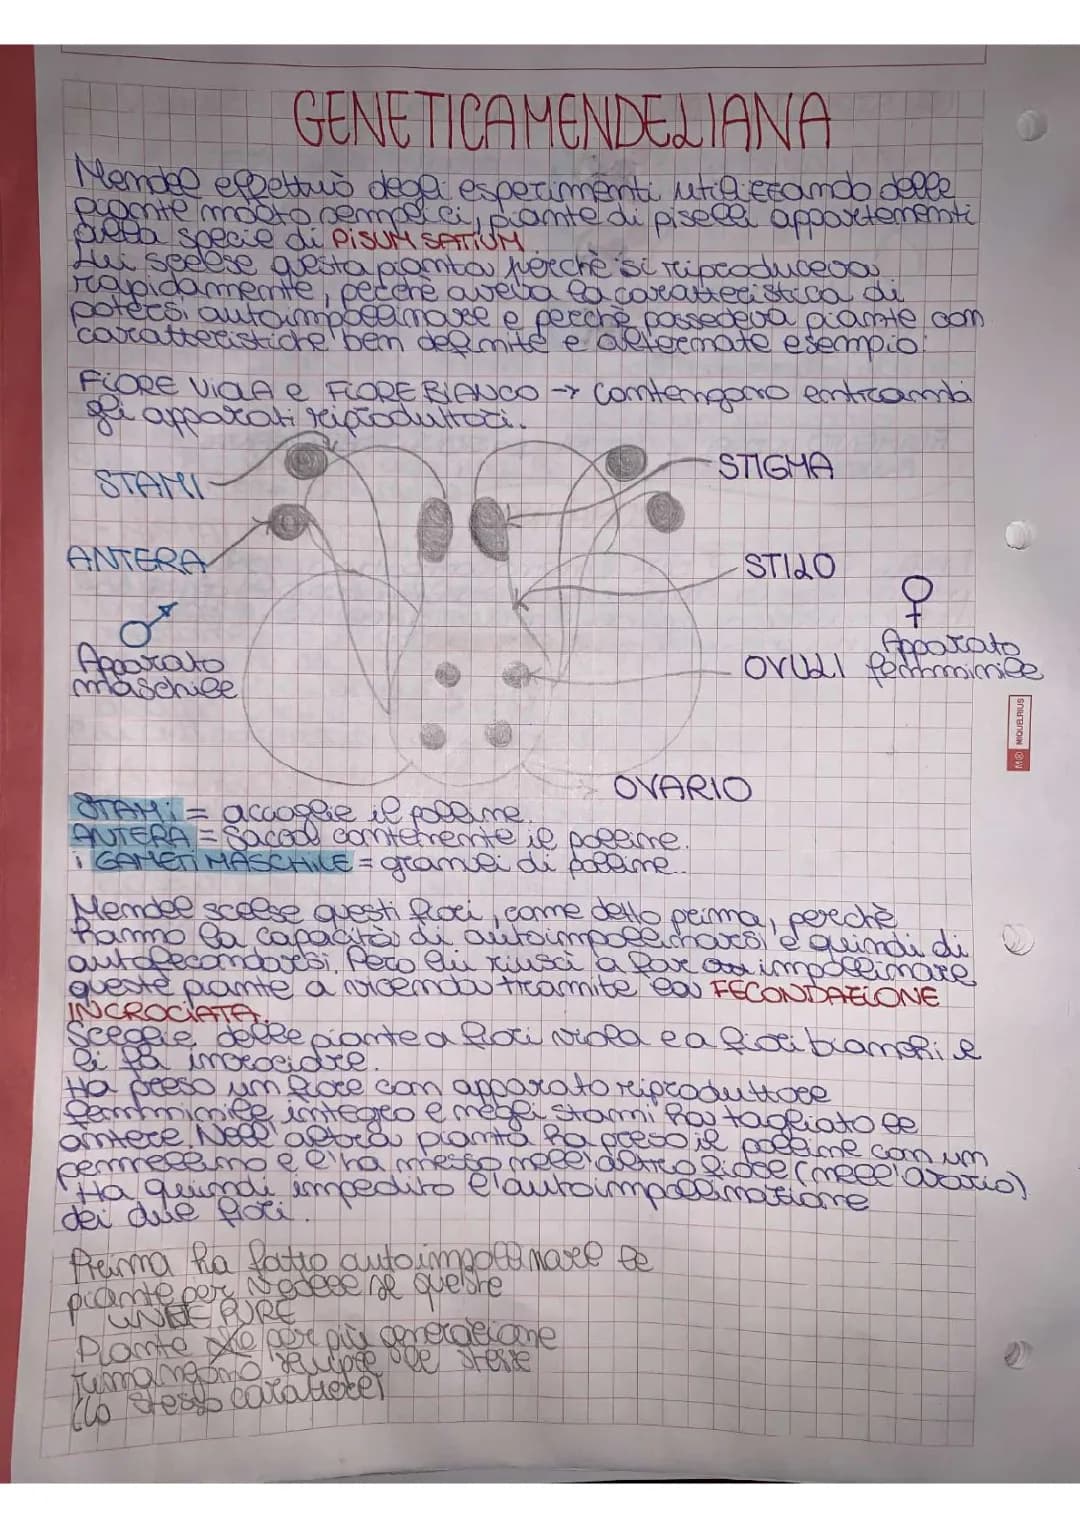 GENETICA MENDELIANA
Mendel effettuò degli esperimenti utilizzando delle
piante molto semplici, piante di piselli appartenenti
alla specie di PISUM SATIUM.
Lui scelse questa pianta perchè si riproduceva
rapidamente, perchè aveva la caratteristica di
potersi autoimpollinare e perchè possedeva piante con
caratteristiche ben definite e alternate esempio:
FIORE VIOLA e FIORE BIANCO → contengono entrambi
gli apparati riproduttori.
STAMI
STIGMA
ANTERA
STILO
♂
♀
Apparato
maschile
OVULI
Apparato
femminile
M MIQUELRIUS
OVARIO
STAMi = accoglie il polline.
ANTERA = Sacca contenente il polline.
i GAMETI MASCHILE = granuli di polline..
Mendel scelse questi fiori, come detto prima, perchè
hanno la capacità di autoimpollinarsi e quindi di
autofecondarsi. Però lui riuscì a far impollinare
queste piante a vicenda tramite la FECONDAZIONE
INCROCIATA.
Sceglie delle piante a fiori viola e a fiori bianchi e
li fa incrociare.
Ha preso un fiore con apparato riproduttore
femminile integro e negli stami ha tagliato le
antere. Nell'altra pianta ha preso il polline con un
pennellino e l'ha messo nell'altro fiore (nell'ovario)
Ha quindi impedito l'autoimpollinazione
dei due fiori.
Prima ha fatto autoimpollinare le
piante per vedere se queste
LINEE PURE
Piante che per più generazione
rimangono sempre le stesse
(lo stesso carattere)